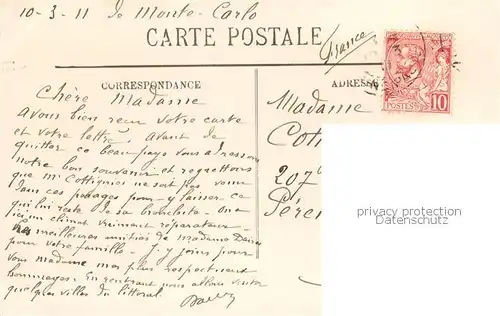 10-3-11 de Monte-Carlo
CARTE POSTALE
(France)
CORRESPONDANCE
ADRESSE
Chère Madame
avons bien reçu votre carte
et votre lettre. Avant de
quitter ce beau pays vous adressons
notre bon souvenir et regrettons
que Mr Cottignies ne soit pas venu
dans ces parages pour y laisser ce
qui lui reste de sa bronchite - on a
ici un climat vraiment réparateur -
les meilleures amitiés de madame
pour votre famille - J'y joins pour
vous madame mes plus respectueux
hommages. En rentrant nous allons visiter
quelques villes du littoral.
Madame
Cotti
207
Péren
POSTES
10
privacy protection
Datenschutz